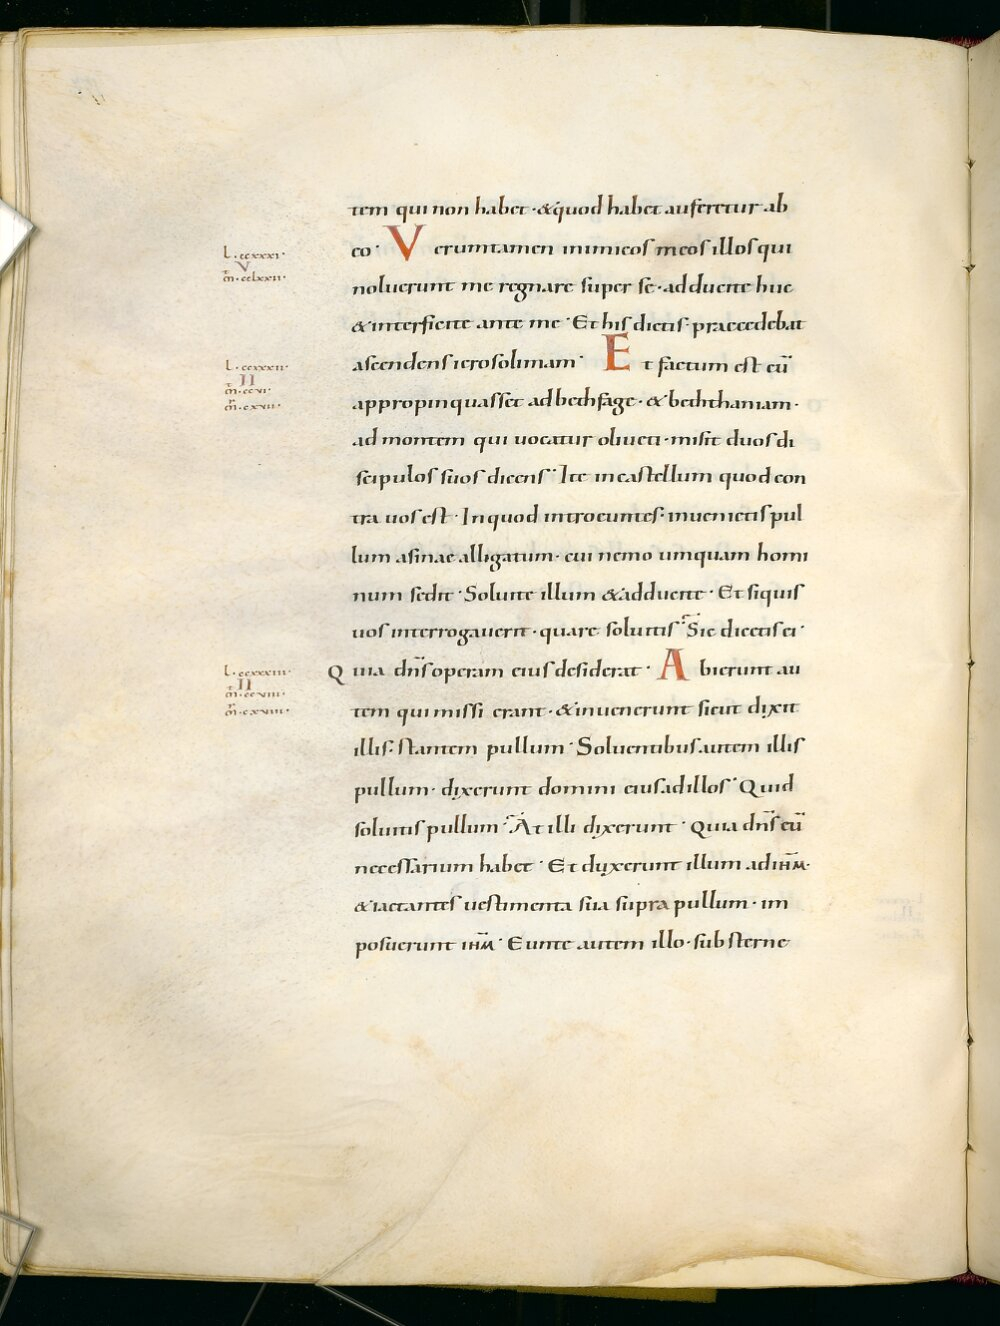 tem qui non habet · & quod habet auferetur ab
L · ccxxxi ·
V
m̄ · cclxxii ·
eo · Verumtamen inimicos meos illos qui
noluerunt me regnare super se · adducite huc
& interficite ante me · Et his dictis · praecedebat
L · ccxxxii ·
II
m̄ · ccvi ·
m̄ · cxvii ·
ascendens ierosolimam · Et factum est cū
appropinquasset ad bethfage · & beththaniam ·
ad montem qui uocatur oliueti · misit duos di
scipulos suos dicens · Ite in castellum quod con
tra uos est · In quod introeuntes · inuenietis pul
lum asinae alligatum · cui nemo umquam homi
num sedit · Soluite illum & adducite · Et siquis
uos interrogauerit · quare soluitis · Sic dicetis ei ·
L · ccxxxiii ·
II
m̄ · ccviii ·
m̄ · cxviii ·
Quia dn̄s operam eius desiderat · Abierunt au
tem qui missi erant · & inuenerunt sicut dixit
illis · stantem pullum · Soluentibus autem illis
pullum · dixerunt domini eius ad illos · Quid
soluitis pullum · At illi dixerunt · Quia dn̄s eū
necessarium habet · Et duxerunt illum ad ih̄m ·
& iactantes uestimenta sua supra pullum · im
posuerunt ih̄m · Eunte autem illo · substerne